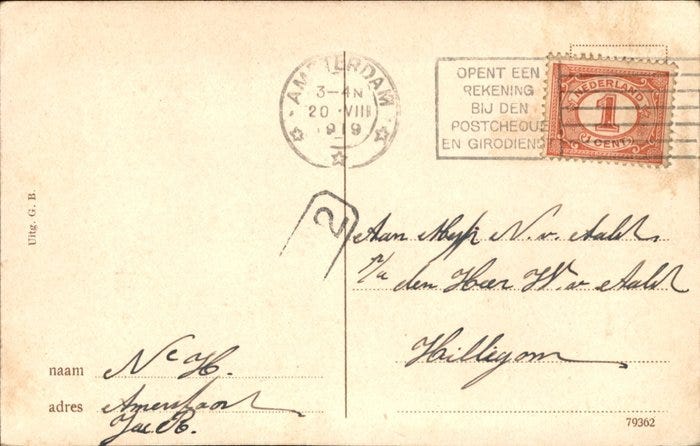 AMSTERDAM
3-4 N
20 VIII
1919
OPENT EEN
REKENING
BIJ DEN
POSTCHEQUE
EN GIRODIENS
NEDERLAND
1
1 CENT
2
Uitg. G. B.
Aan Mejf N. v. Aalst
p/a den Heer W. v Aalst
Hilligom
naam Nc H.
adres Amersfoort
Jac. R.
79362